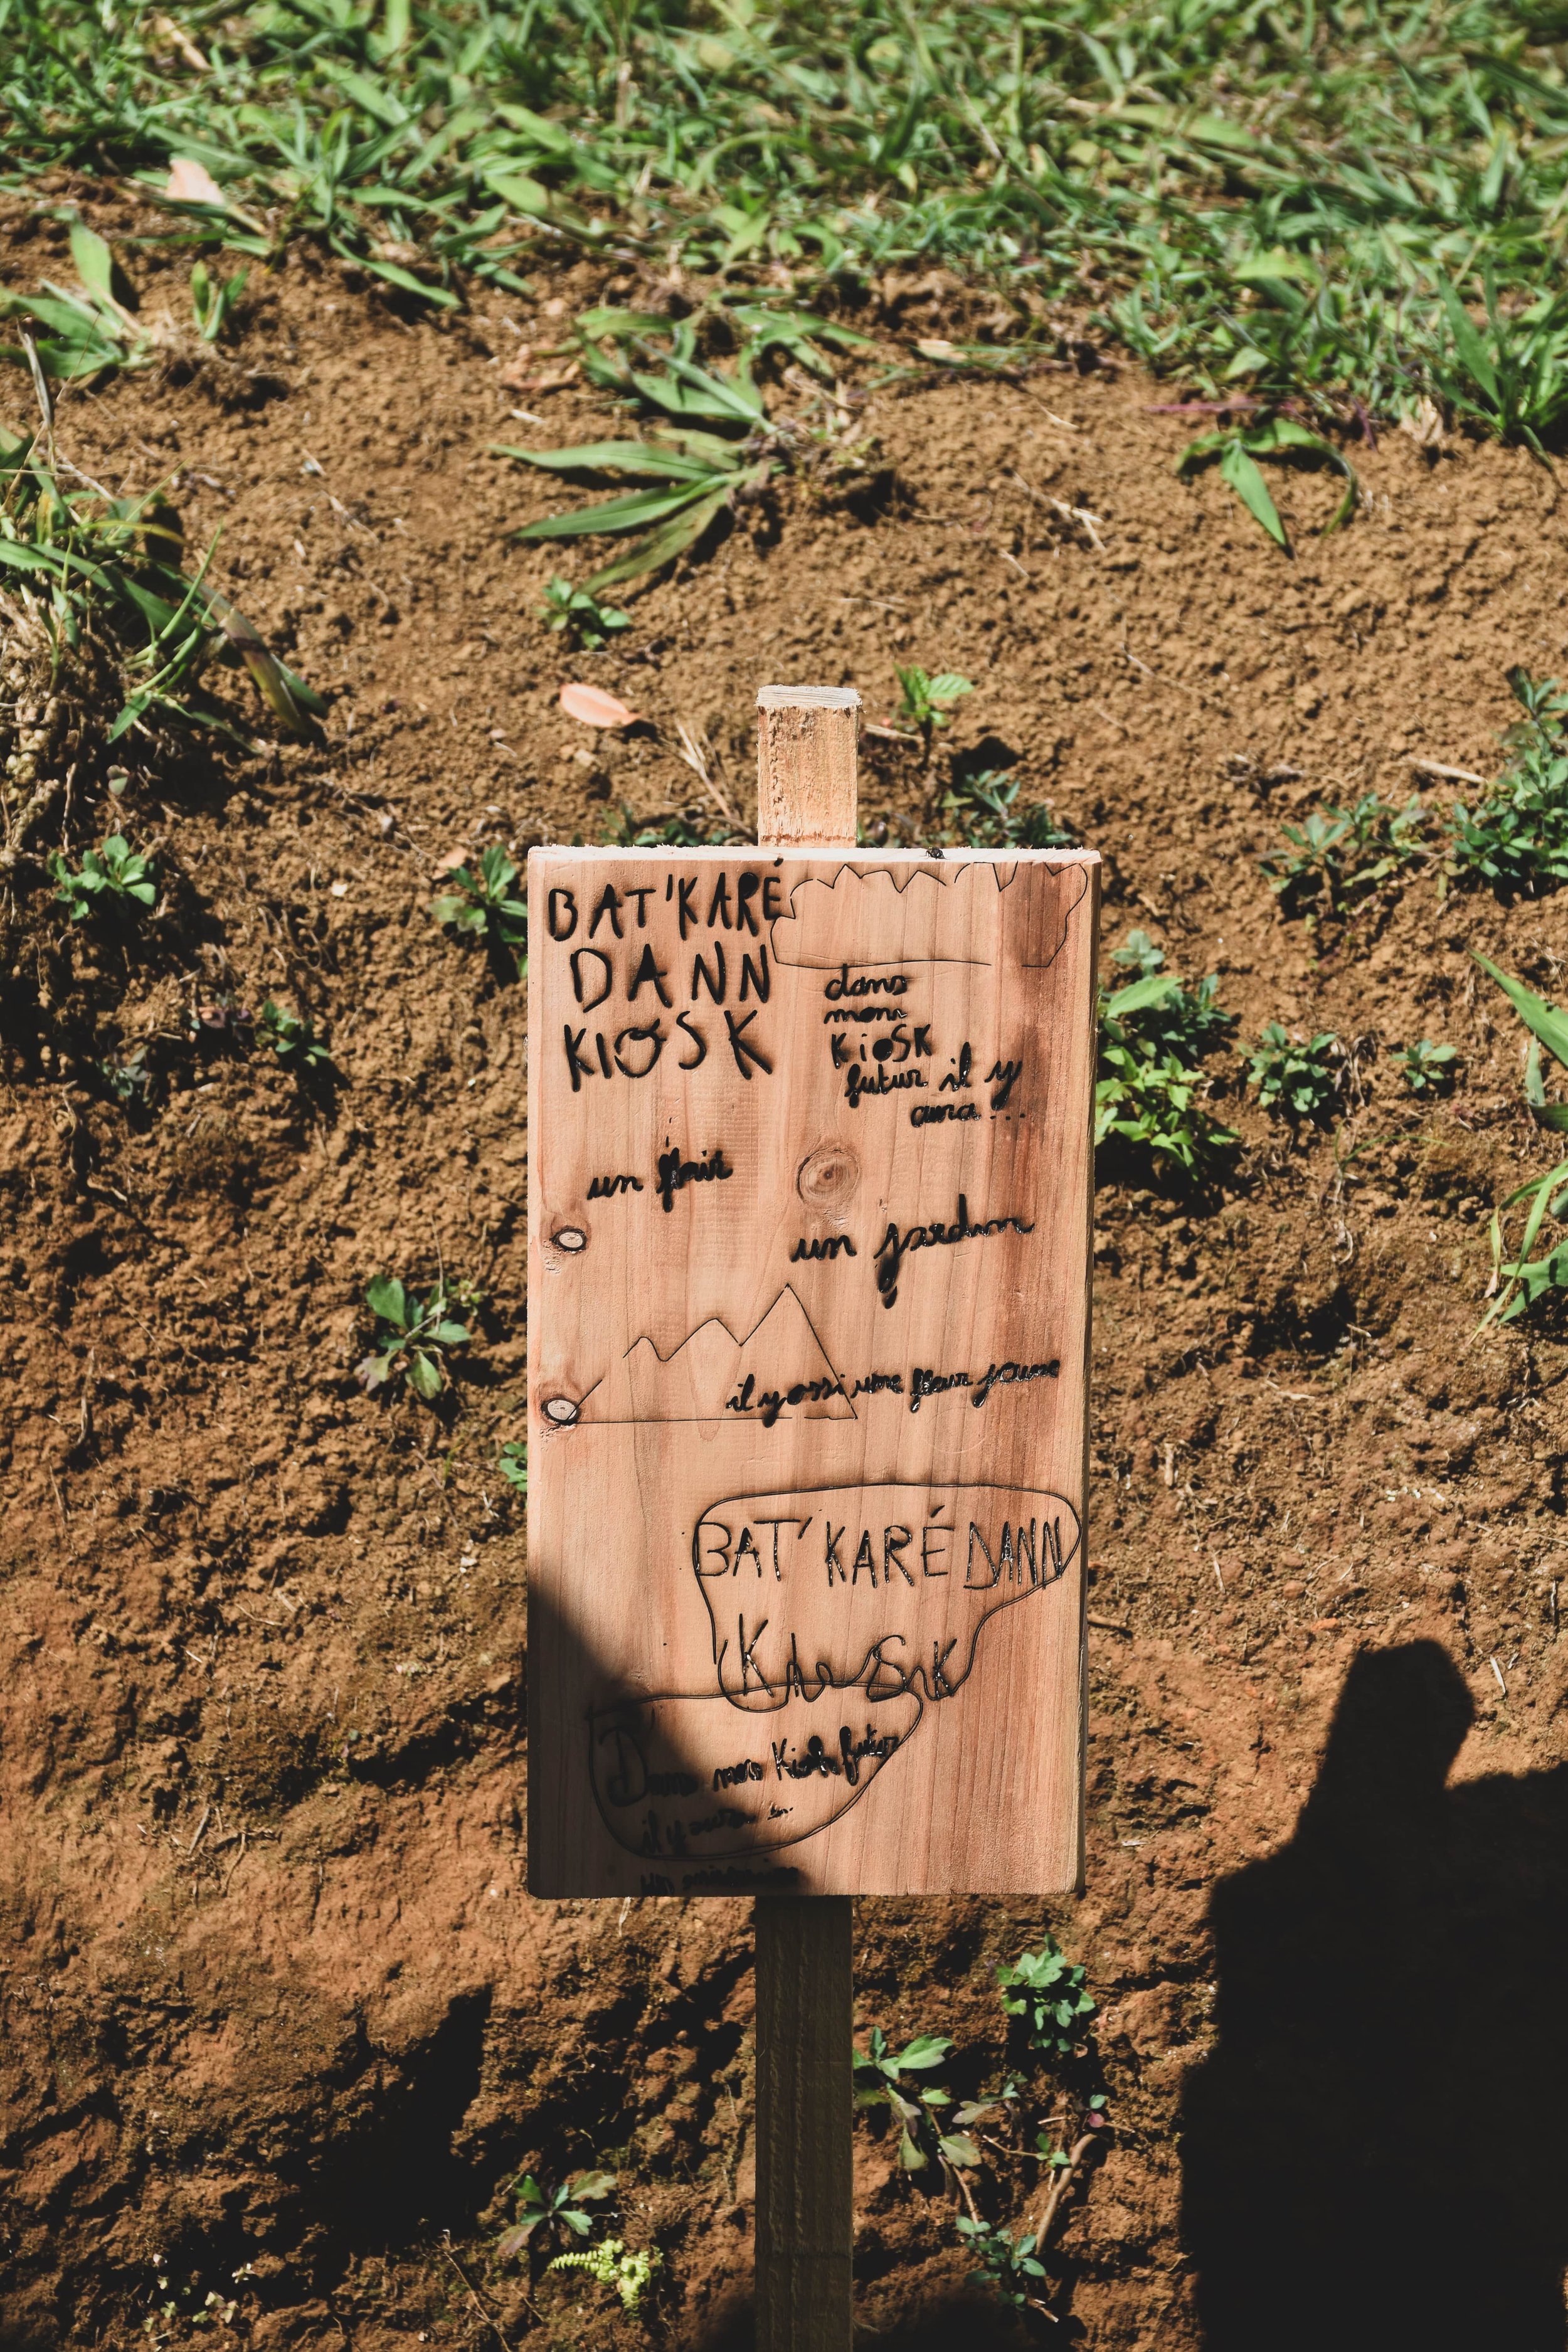 BAT'KARÉ
DANN
KIOSK
dans
mon
KiOSK
futur il y
aura ...
un
un jardin
il y ossi une fleur jaune
BAT'KARÉ DANN
KioSK
Dans mon Kiosk futur
il y aura